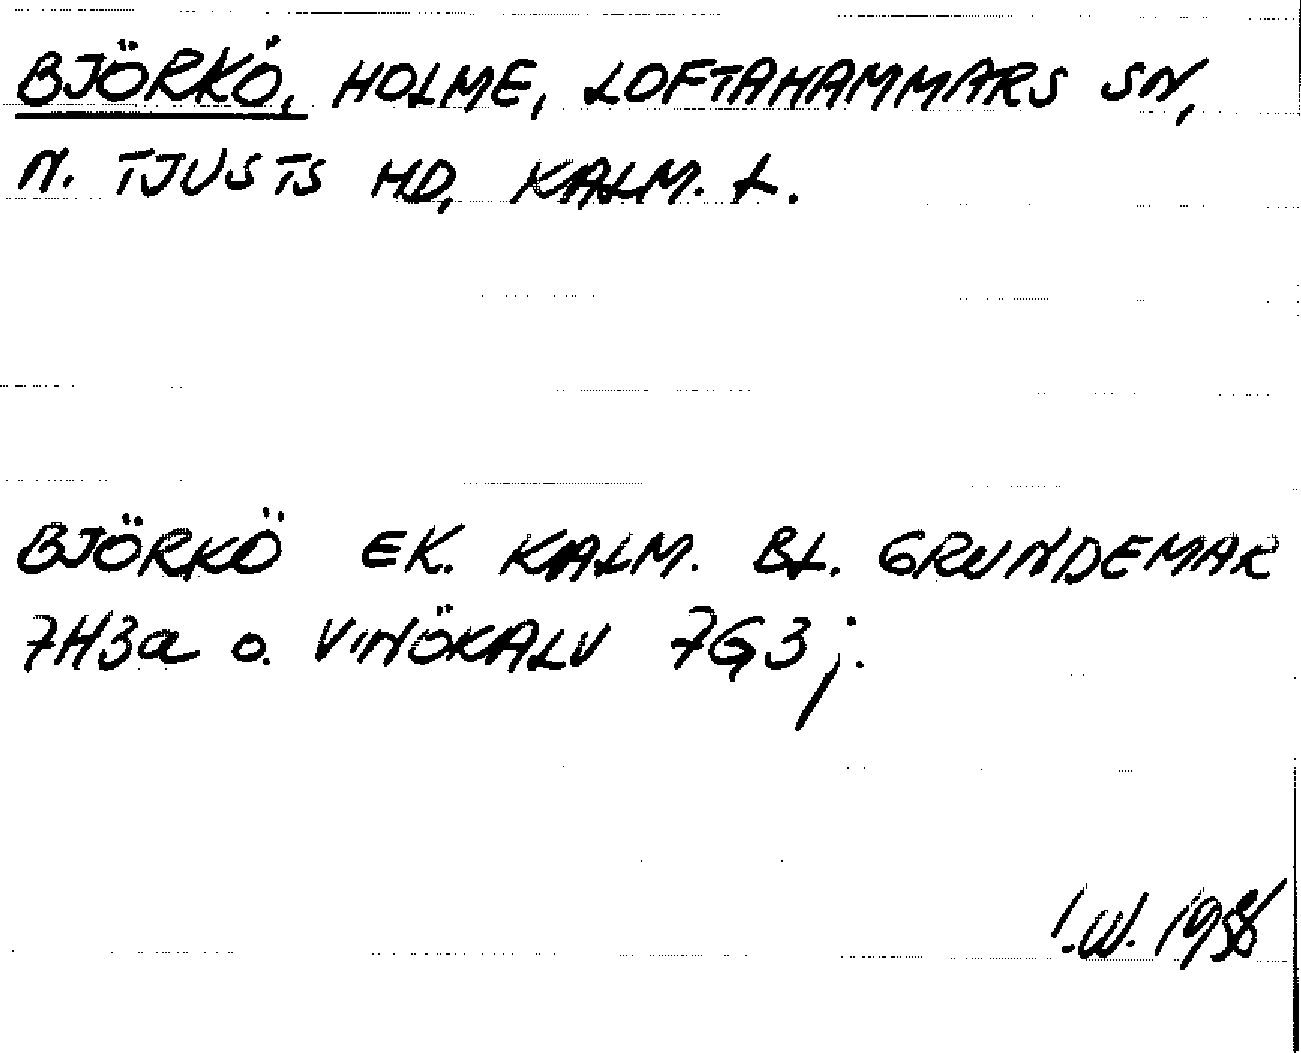 BJÖRKÖ, HOLME, LOFTAHAMMARS SN,
N. TJUSTS HD, KALM. L.
BJÖRKÖ EK. KALM. BL. GRUNDEMAR
7H3a o. VINÖKALV 7G3j.
I.W. 1958